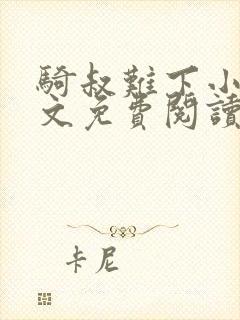 騎叔難下小
文免費閱讀
卡尼